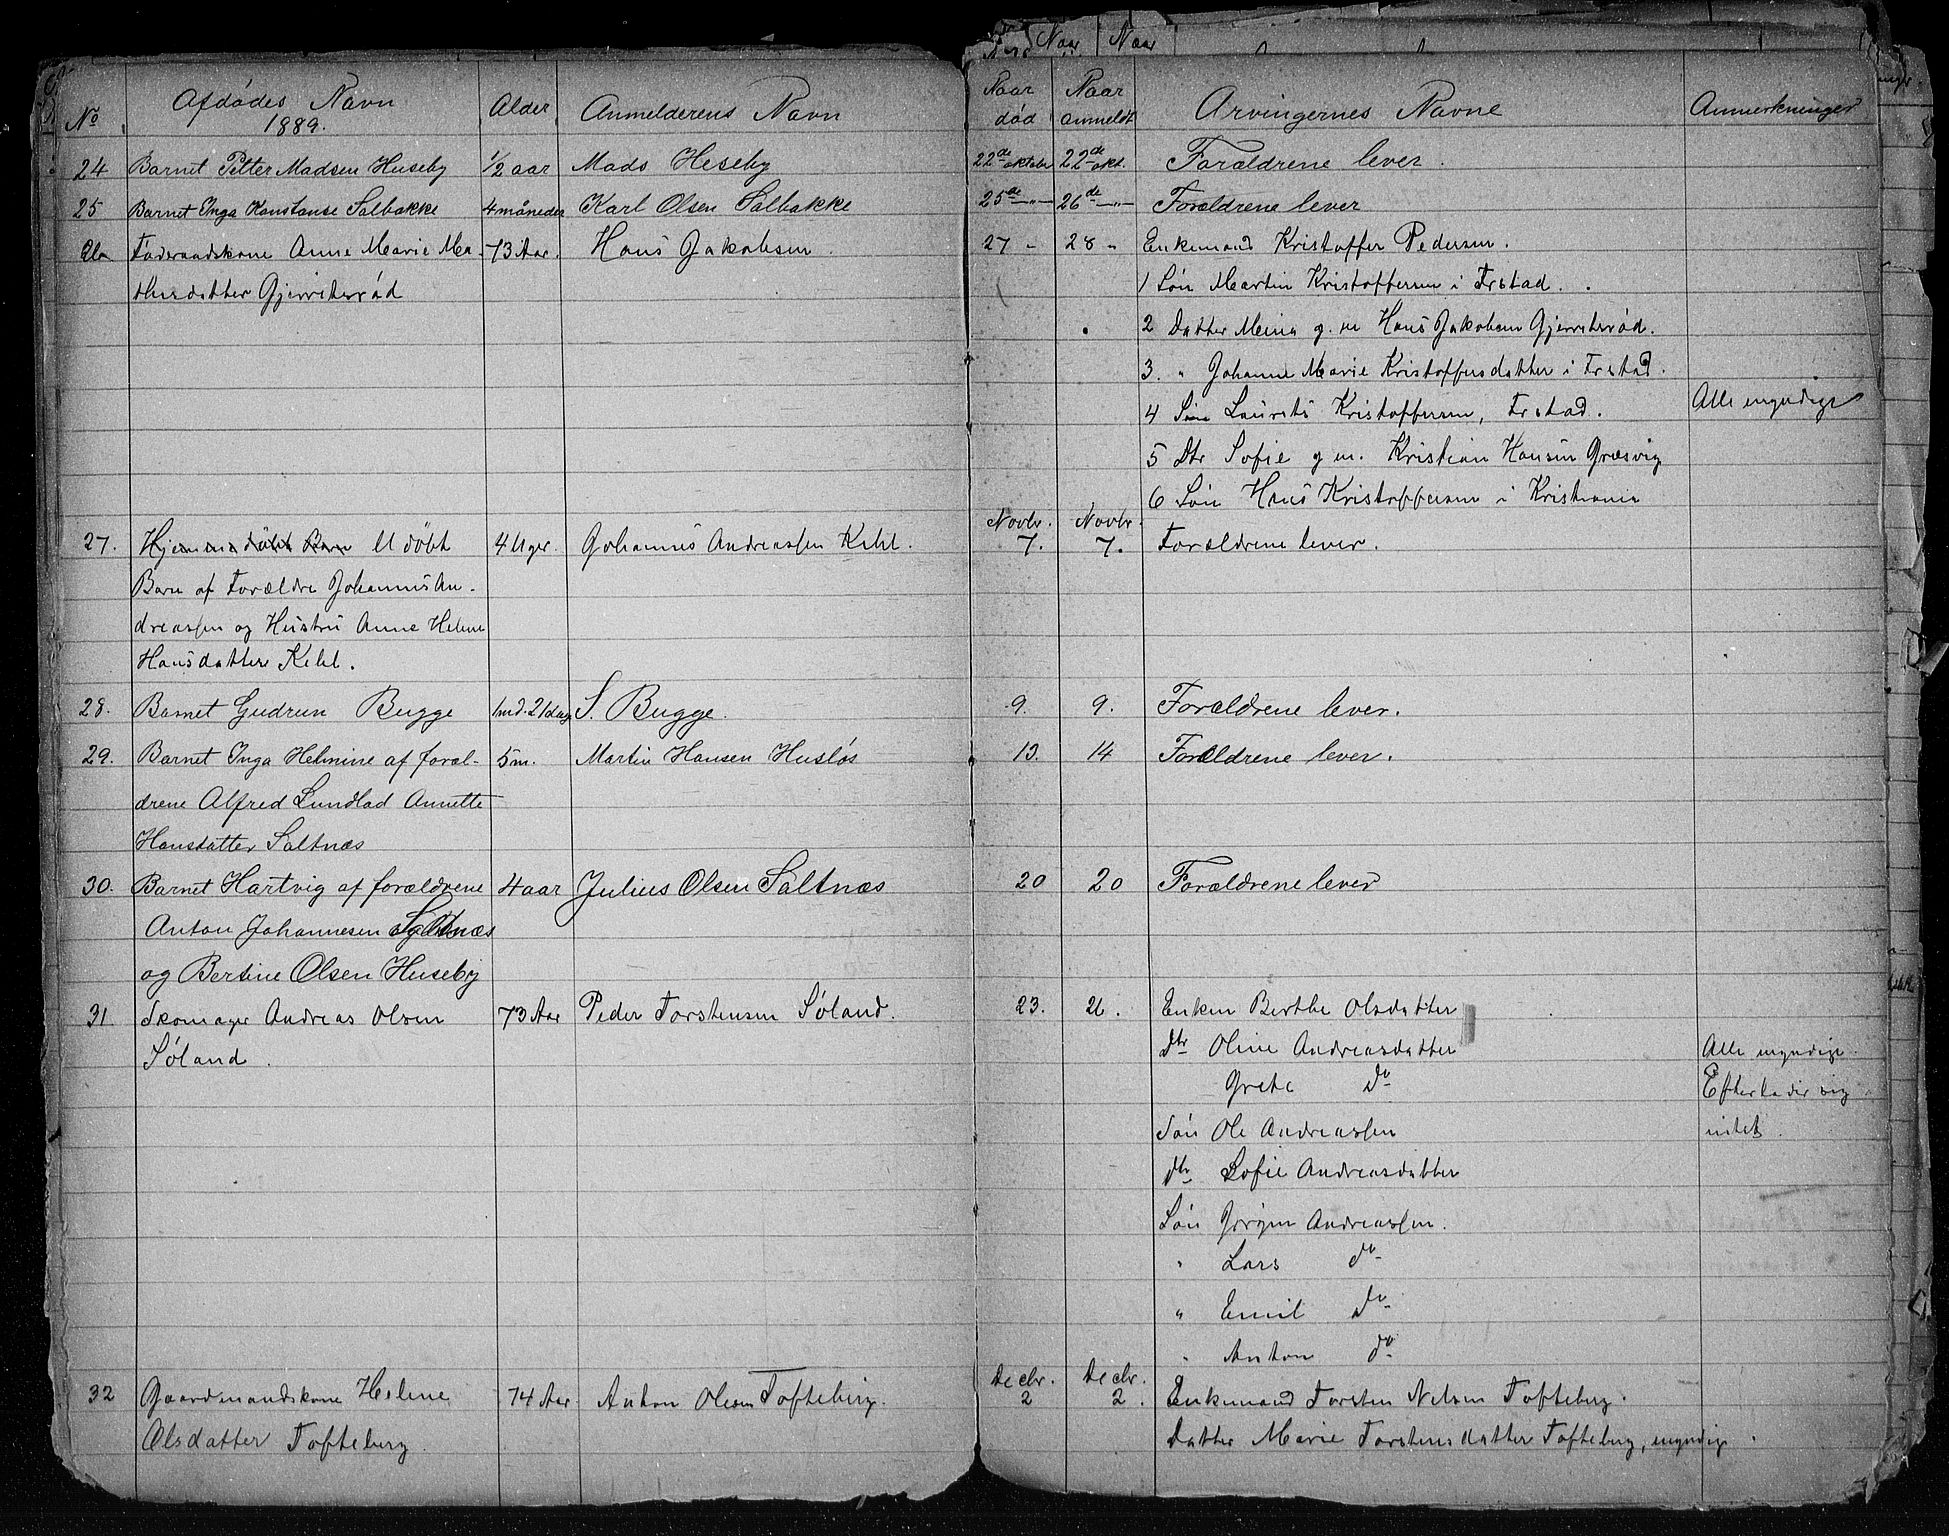 No
Afdødes Navn
1889.
Alder
Anmelderens Navn
Naar død
Naar anmeldt
Arvingernes Navne
Anmerkninger
24 Barnet Petter Madsen Huseby 1/2 aar Mads Heseby 22de oktober 22de okt. Forældrene lever.
25 Barnet Inga Konstanse Salbakke 4 måneder Karl Olsen Salbakke 25de —"— 26de —"— Forældrene lever
Føderaadskone Anne Marie Ma- 73 Aar. Hans Jakobsen. 27 " 28 " Enkemand Kristoffer Pedersen.
thisdatter Gjerritsrød 1 Søn Martin Kristoffersen i Frstad.
2 Datter Mina g. m Hans Jakobsen Gjerritsrød.
3. " Johanne Marie Kristoffersdatter i Frstad.
4 Søn Laurits Kristoffersen, Frstad. Alle myndige
5 Dtr Sofie g m. Kristian Hansen Græsvig
6 Søn Hans Kristoffersen i Kristiania
Novbr. Novbr.
27. Hjemmedøbt Barn Udøbt 4 Uger. Johannes Andreassen Kihl. 7. 7. Forældrene lever.
Barn af Forældre Johannes An-
dreassen og Hustru Anne Helene
Hansdatter Kihl.
28. Barnet Gudrun Bugge 1 md. 21 dag S. Bugge. 9. 9. Forældrene lever.
29. Barnet Inga Helmine af foræl- 5 m. Martin Hansen Husløs 13. 14 Forældrene lever.
drene Alfred Lundblad Annette
Hansdatter Saltnæs
30. Barnet Hartvig af forældrene 4 aar Julius Olsen Saltnæs 20 20 Forældrene lever
Anton Johannesen Saltnæs
og Bertine Olsen Huseby
31. Skomager Andreas Olsen 73 Aar Peder Torstensen Søland. 23. 26. Enken Berthe Olsdatter
Søland. dtr Oline Andreasdatter Alle myndige.
Grete do Efterlader sig
Søn Ole Andreassen intet.
dtr Sofie Andreasdatter
Søn Jørgen Andreassen.
" Lars do
" Emil do
" Anton do
Decbr. Decbr.
32 Gaardmandskone Helene 74 Aar. Anton Olsen Tofteberg. 2 2. Enkemand Torsten Nilsen Tofteberg.
Olsdatter Tofteberg. Datter Marie Torstensdatter Tofteberg, myndig.